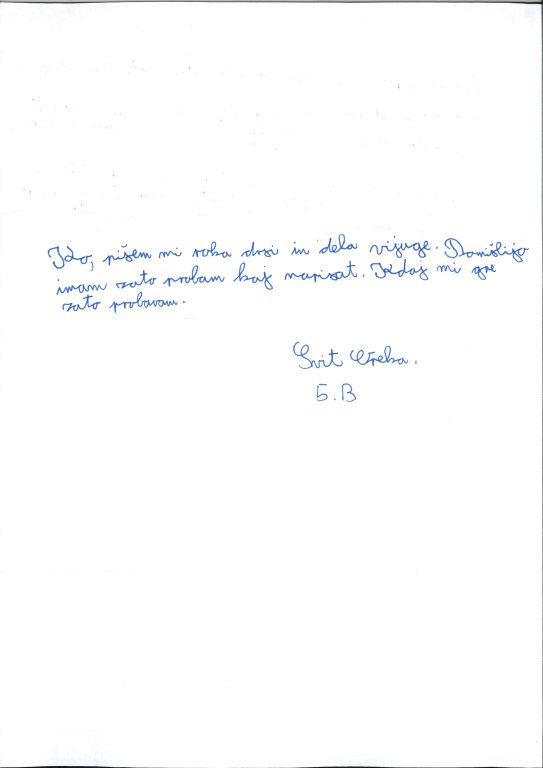 Ko, pišem mi roka drsi in dela vijuge. Domišlijo
imam zato probam kaj napisat. Kdaj mi gre
zato probavam.
Svit
5.B